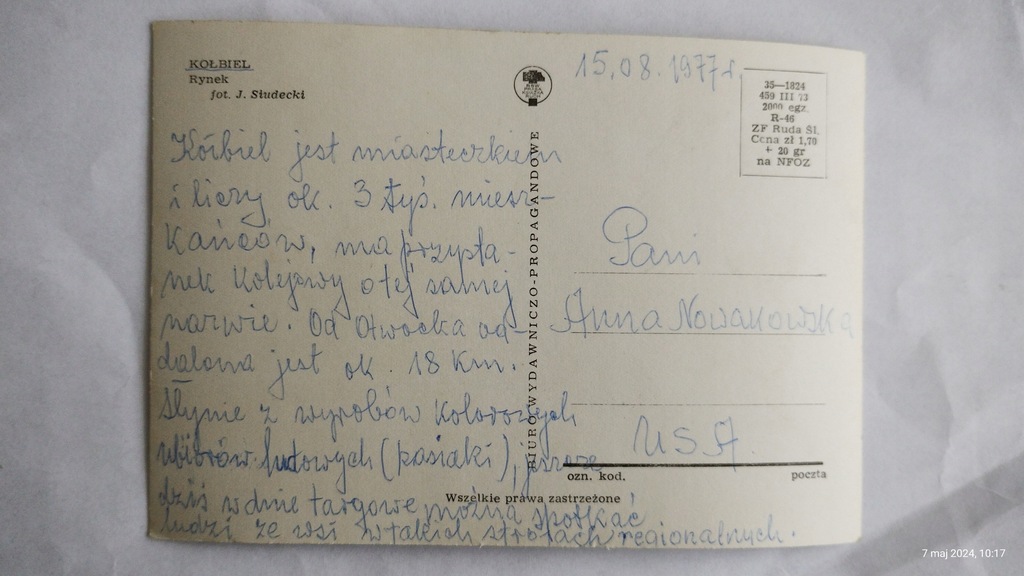 KOŁBIEL
Rynek
fot. J. Siudecki
15.08.1977r.
35—1824
459 III 73
2000 egz.
R-46
ZF Ruda Śl.
Cena zł 1,70
+ 20 gr
na NFOZ
Kołbiel jest miasteczkiem
i liczy ok. 3 tyś. miesz-
kańców, ma przysta-
nek kolejowy o tej samej
nazwie. Od Otwocka od-
dalona jest ok. 18 km.
Słynie z wyrobów kolorowych
ubiorów ludowych (pasiaki), jeszcze
dziś w dnie targowe można spotkać
ludzi ze wsi w takich strojach regionalnych.
BIURO WYDAWNICZO-PROPAGANDOWE
Pani
Anna Nowakowska
USA
ozn. kod. poczta
Wszelkie prawa zastrzeżone
7 maj 2024, 10:17